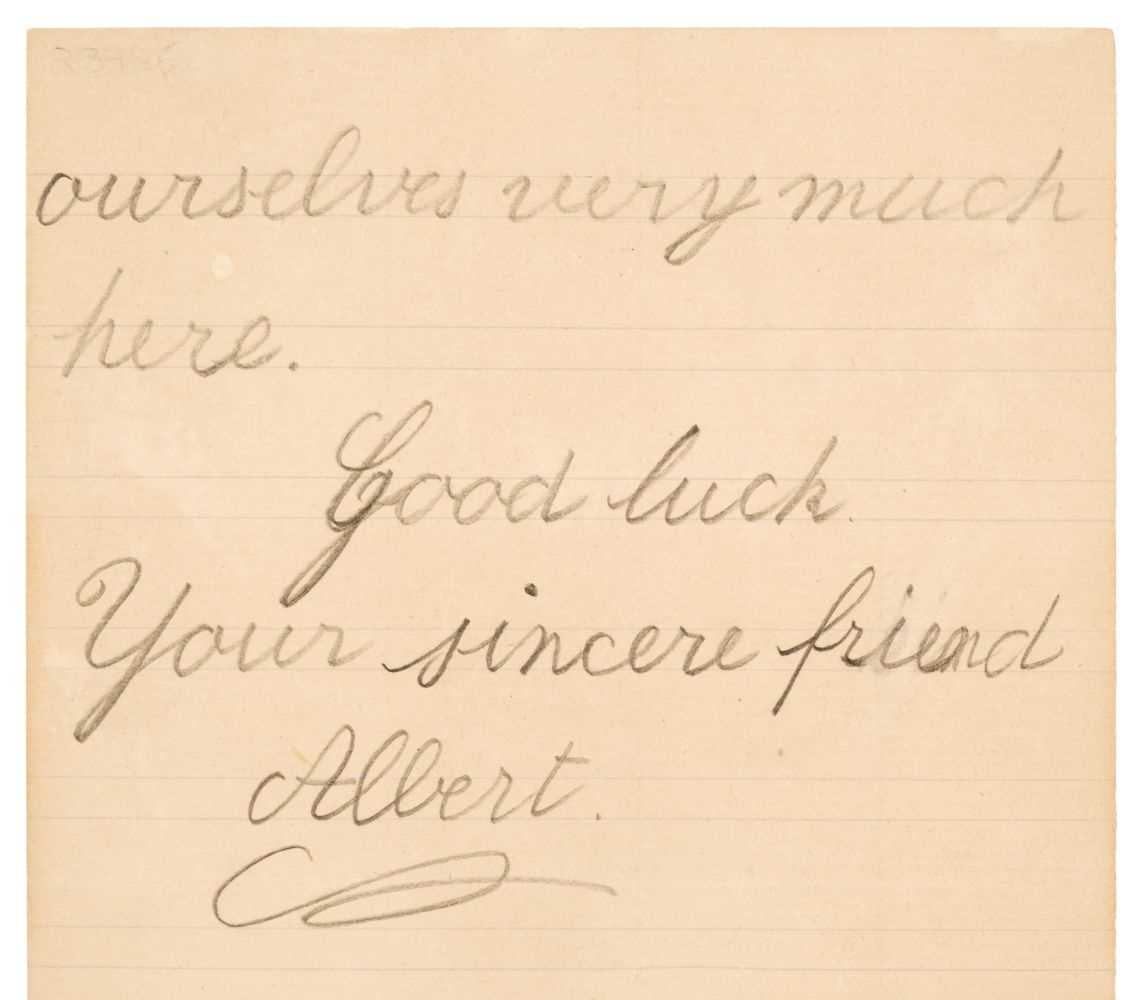 ourselves very much
here.
Good luck.
Your sincere friend
Albert.